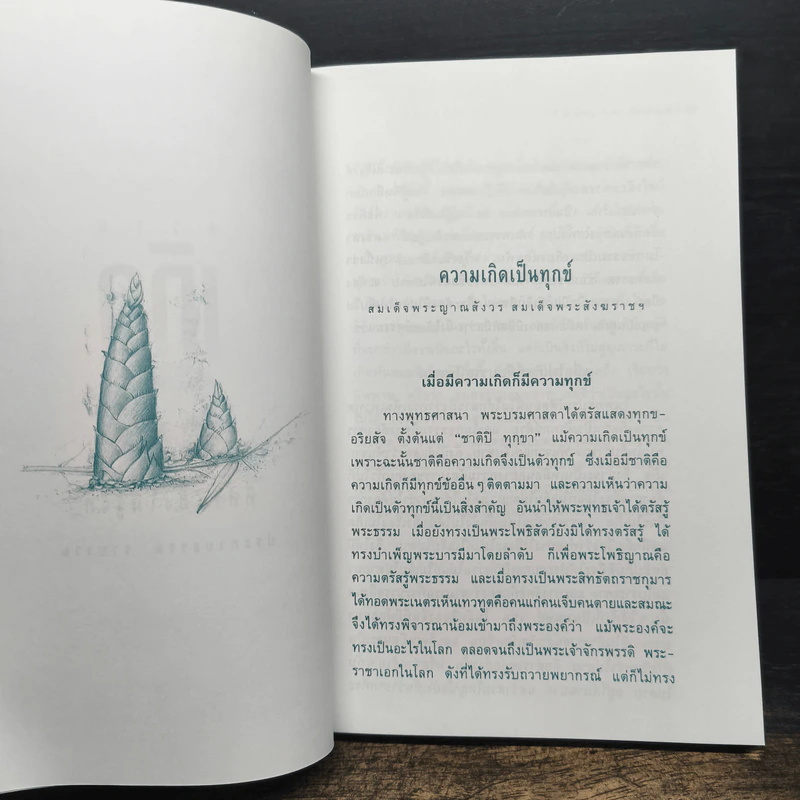 ความเกิดเป็นทุกข์
สมเด็จพระญาณสังวร สมเด็จพระสังฆราชฯ
เมื่อมีความเกิดก็มีความทุกข์
ทางพุทธศาสนา พระบรมศาสดาได้ตรัสแสดงทุกข-
อริยสัจ ตั้งต้นแต่ “ชาติปิ ทุกฺขา” แม้ความเกิดเป็นทุกข์
เพราะฉะนั้นชาติคือความเกิดจึงเป็นตัวทุกข์ ซึ่งเมื่อมีชาติคือ
ความเกิดก็มีทุกข์ข้ออื่น ๆ ติดตามมา และความเห็นว่าความ
เกิดเป็นตัวทุกข์นี้เป็นสิ่งสำคัญ อันนำให้พระพุทธเจ้าได้ตรัสรู้
พระธรรม เมื่อยังทรงเป็นพระโพธิสัตว์ยังมิได้ทรงตรัสรู้ ได้
ทรงบำเพ็ญพระบารมีมาโดยลำดับ ก็เพื่อพระโพธิญาณคือ
ความตรัสรู้พระธรรม และเมื่อทรงเป็นพระสิทธัตถราชกุมาร
ได้ทอดพระเนตรเห็นเทวทูตคือคนแก่คนเจ็บคนตายและสมณะ
จึงได้ทรงพิจารณาน้อมเข้ามาถึงพระองค์ว่า แม้พระองค์จะ
ทรงเป็นอะไรในโลก ตลอดจนถึงเป็นพระเจ้าจักรพรรดิ พระ-
ราชาเอกในโลก ดังที่ได้ทรงรับถวายพยากรณ์ แต่ก็ไม่ทรง